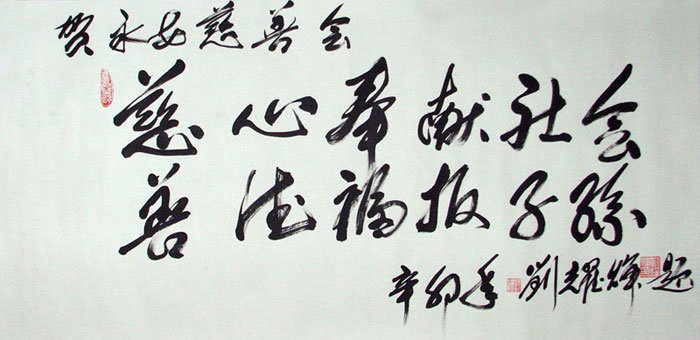 贺永安慈善会
慈心奉献社会
善德福报子孙
辛卯年 劉耀輝题